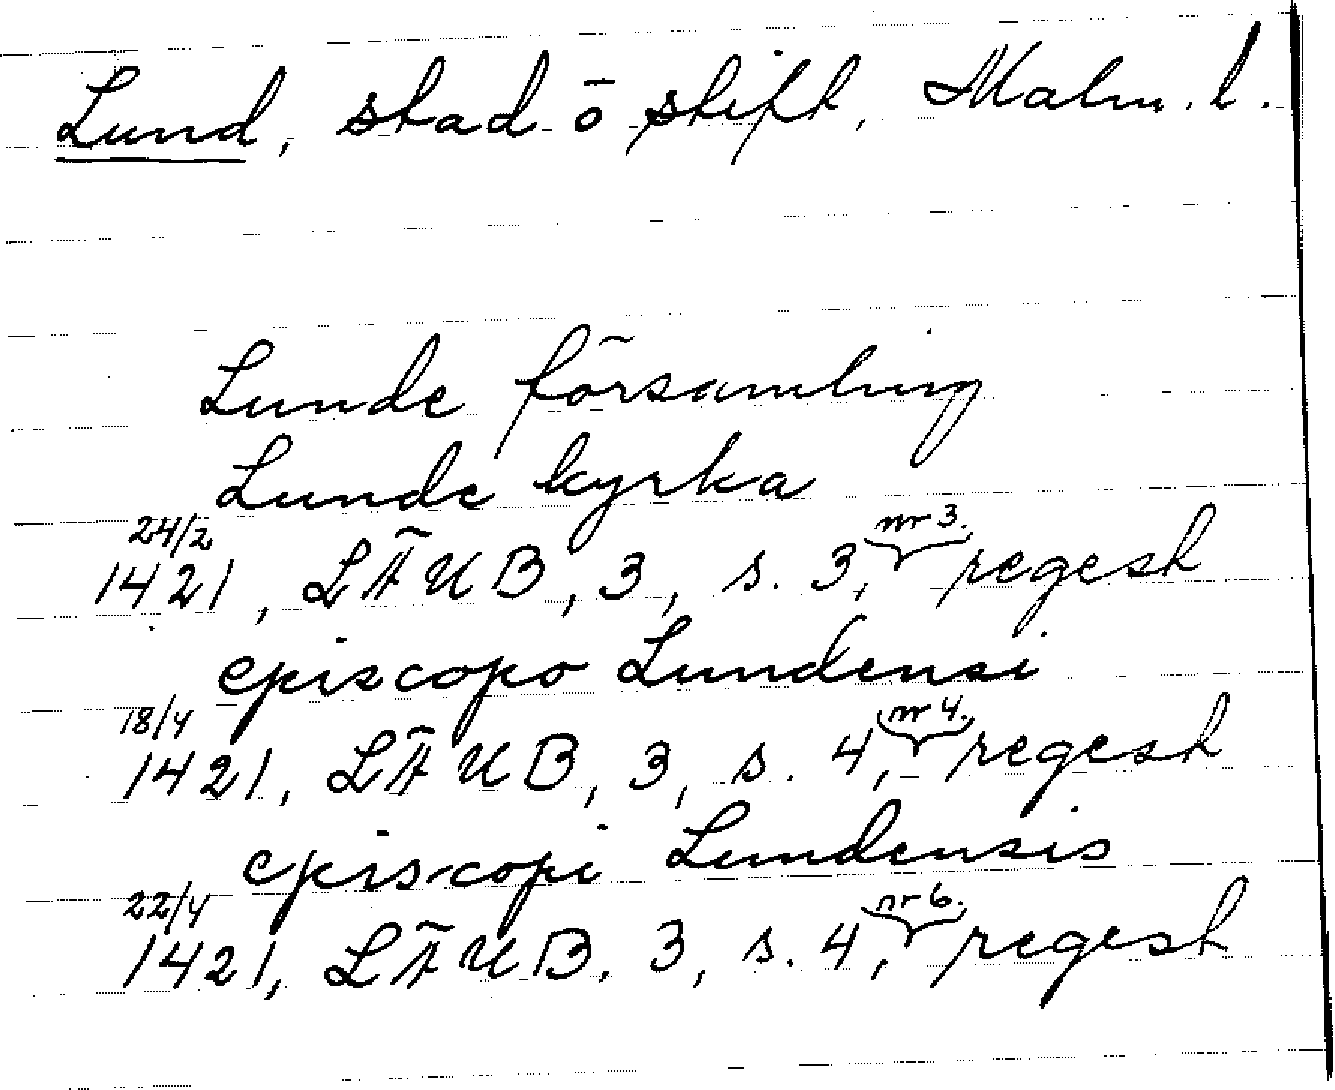 Lund, stad o stift, Malm. l.
Lunde församling
Lunde kyrka
24/2 1421, LÄUB, 3, s. 3, nr 3. regest
episcopo Lundensi
18/4 1421, LÄUB, 3, s. 4, nr 4. regest
episcopi Lundensis
22/4 1421, LÄUB. 3, s. 4, nr 6. regest